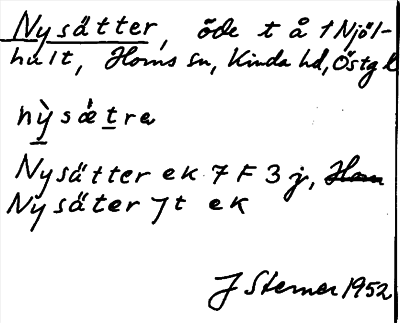 Nysätter, öde t å 1 Njöl-
hult, Horns sn, Kinda hd, Östg l
nỳsætra
Nysätter ek 7 F 3 j, Horn
Nysäter Jt ek
J Sterner 1952